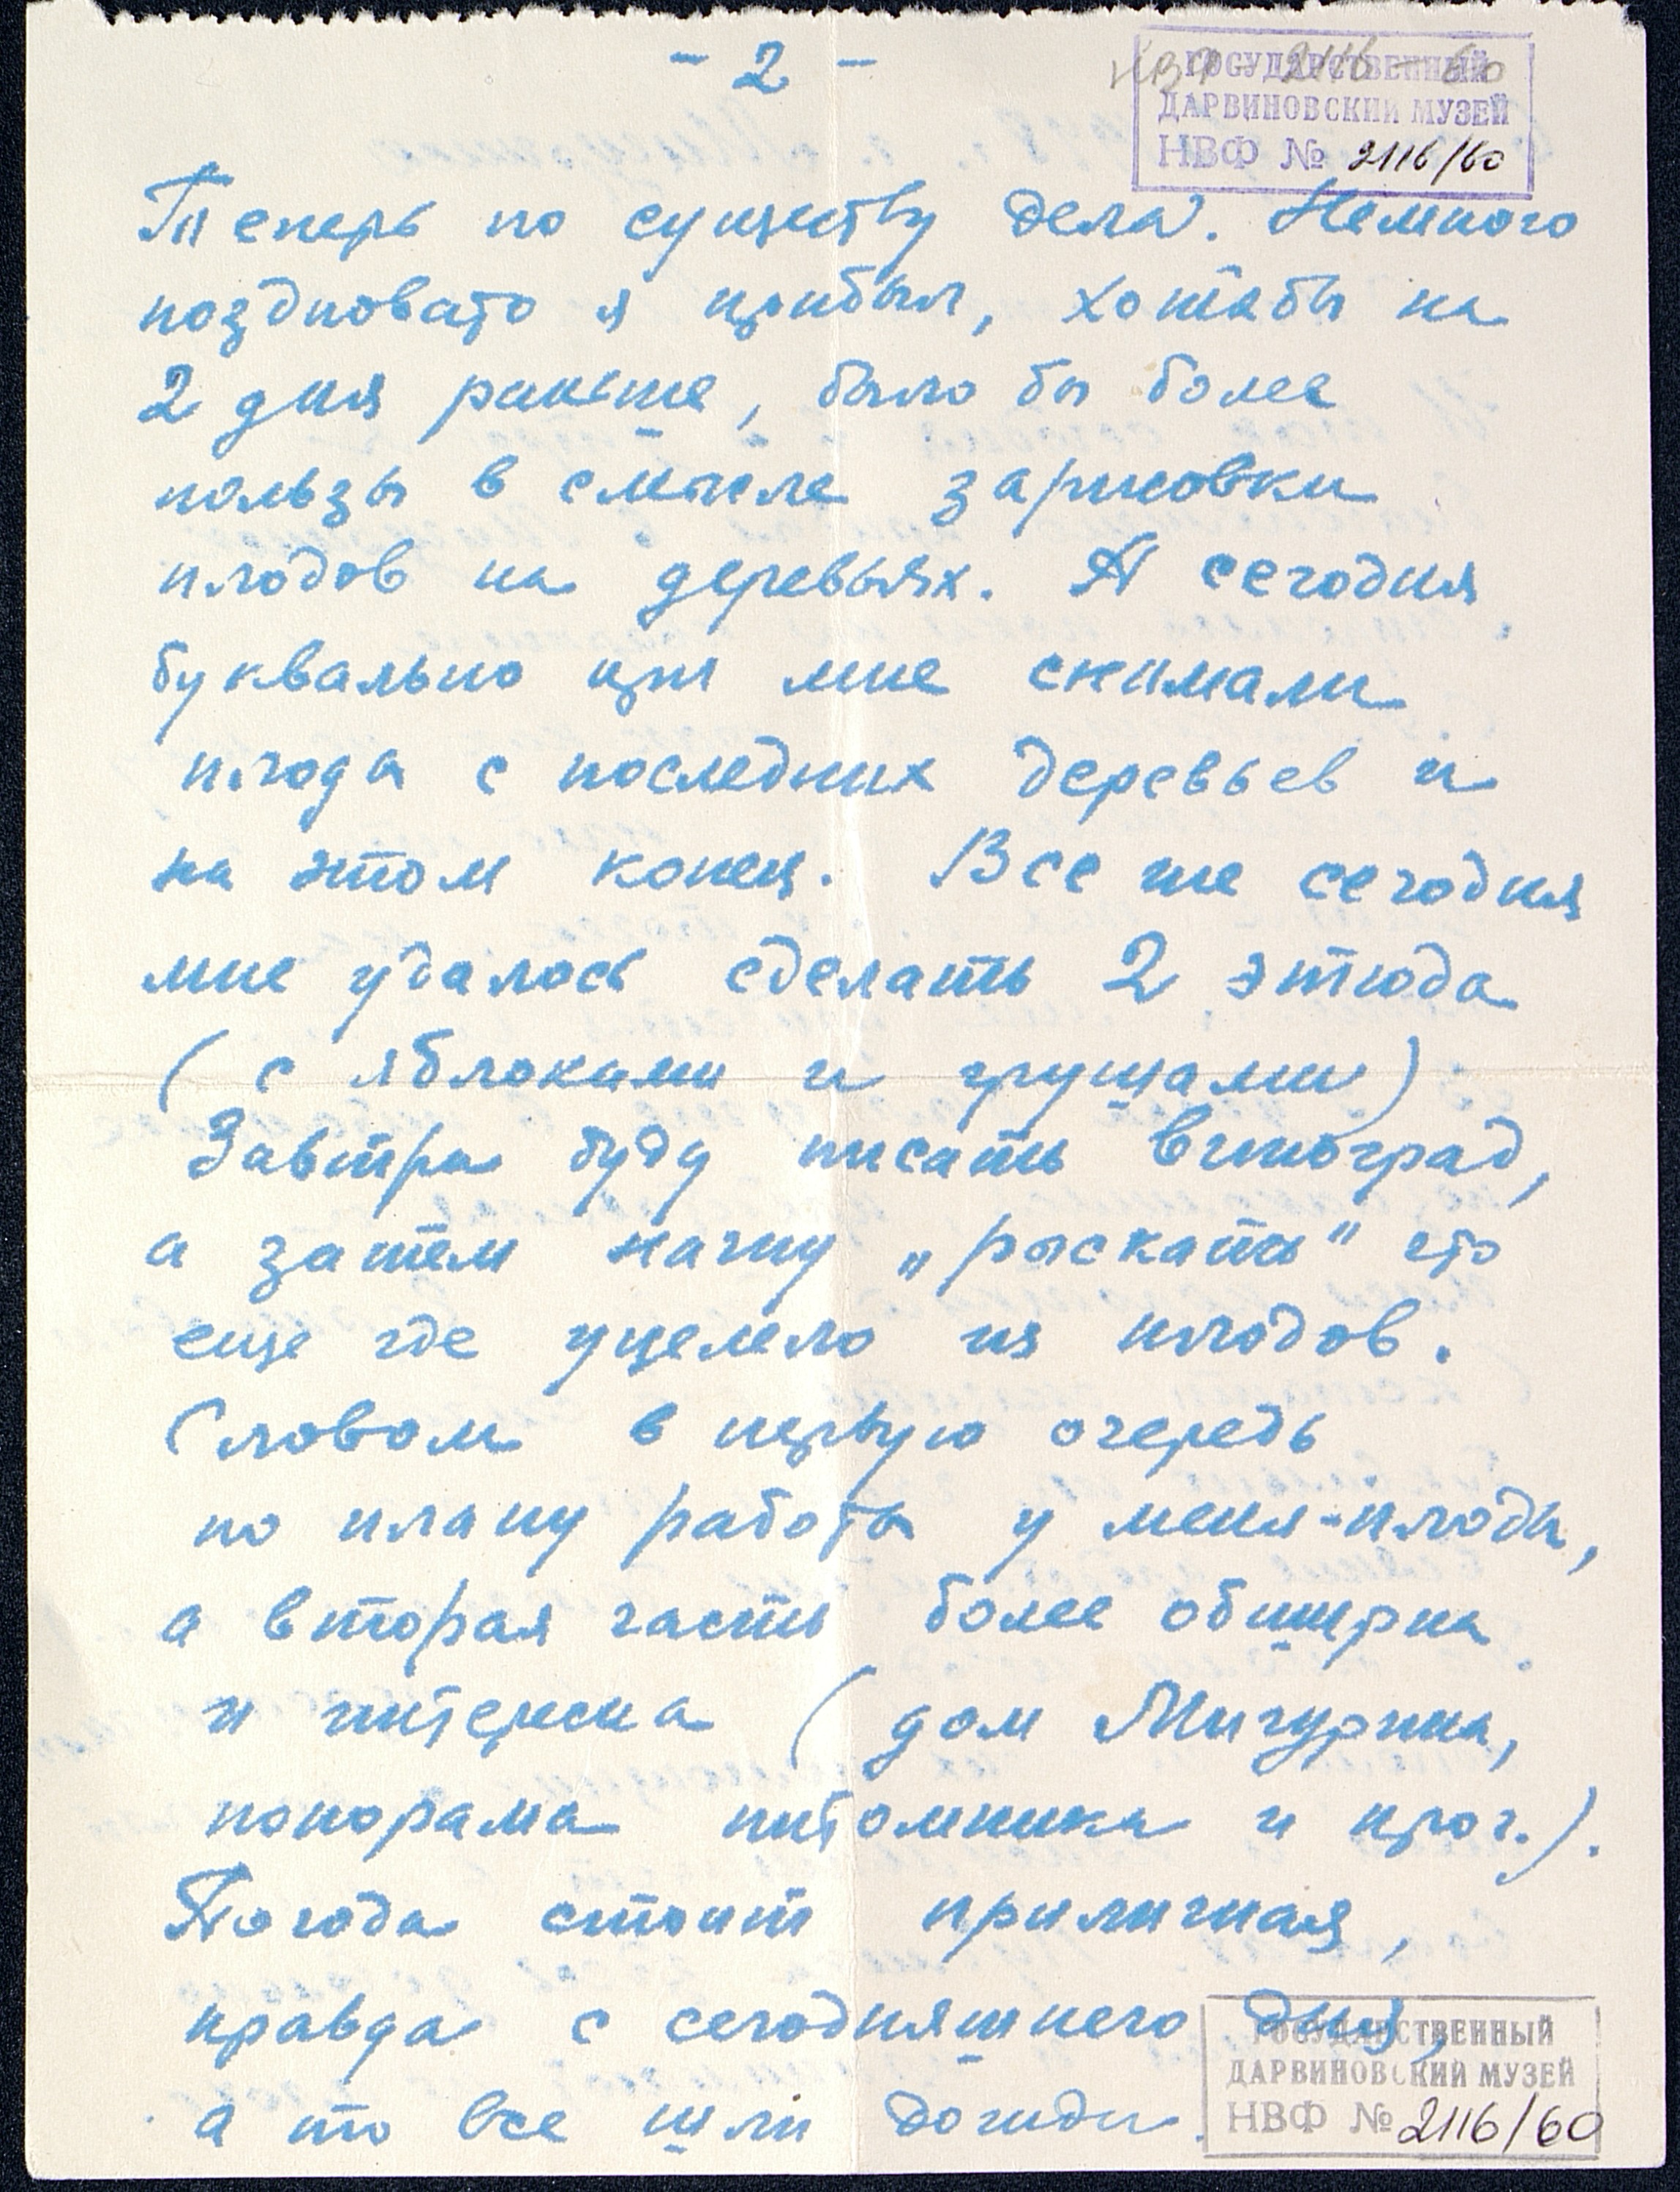 - 2 -
НВФ 2116-60
ГОСУДАРСТВЕННЫЙ
ДАРВИНОВСКИЙ МУЗЕЙ
НВФ № 2116/60
Теперь по существу дела. Немного
поздновато я прибыл, хотябы на
2 дня раньше, было бы более
пользы в смысле зарисовки
плодов на деревьях. А сегодня
буквально при мне снимали
плоды с последних деревьев и
на этом конец. Все же сегодня
мне удалось сделать 2 этюда
(с яблоками и грушами)
Завтра буду писать виноград,
а затем начну „рыскать" что
еще где уцелело из плодов.
Словом в первую очередь
по плану работы у меня-плоды,
а вторая часть более обширна
и интересна (дом Мичурина,
понорама питомника и проч.).
Погода стоит приличная,
правда с сегодняшнего дня,
а то все шли дожди.
ГОСУДАРСТВЕННЫЙ
ДАРВИНОВСКИЙ МУЗЕЙ
НВФ № 2116/60